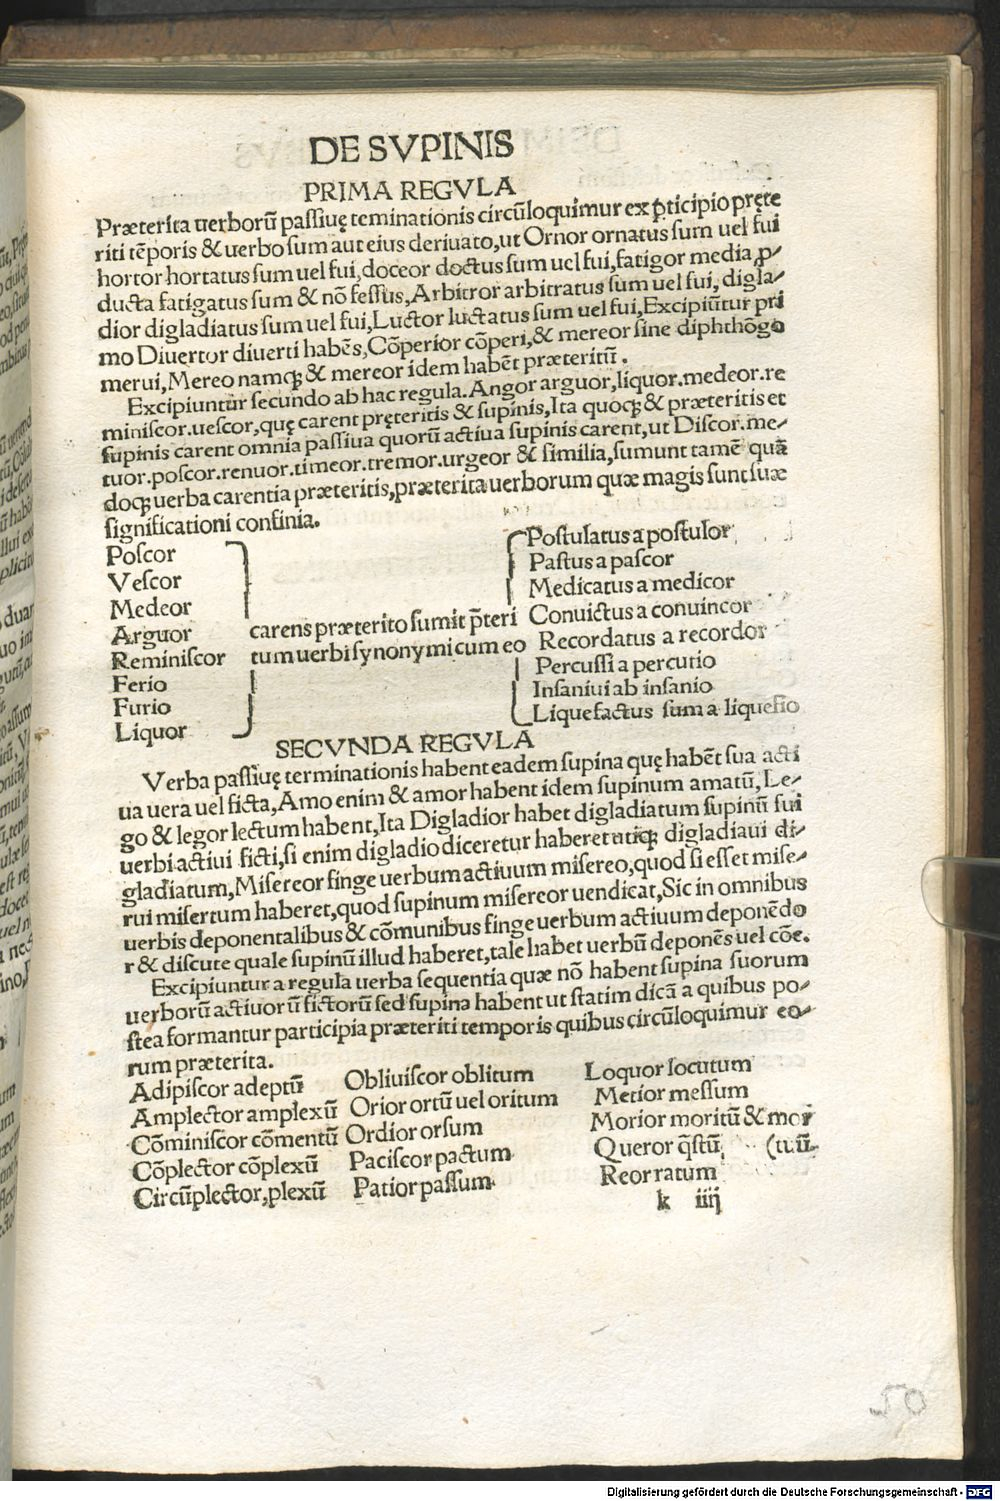 DE SVPINIS
PRIMA REGVLA
Præterita uerborū paſſiuę teminationis circūloquimur ex ꝑticipio pręte
riti tēporis & uerbo ſum aut eius deriuato,ut Ornor ornatus ſum uel fui
hortor hortatus ſum uel fui,doceor doctus ſum uel fui,fatigor media ꝓ⸗
ducta fatigatus ſum & nō feſſus,Arbitror arbitratus ſum uel fui, digla⸗
dior digladiatus ſum uel fui,Luctor luctatus ſum uel fui,Excipiūtur pri
mo Diuertor diuerti habēs,Cōperior cōperi,& mereor ſine diphthōgo
merui,Mereo namqꝫ & mereor idem habēt præteritū.
Excipiuntur ſecundo ab hac regula.Angor arguor,liquor.medeor.re
miniſcor.ueſcor,quę carent pręteritis & ſupinis,Ita quoqꝫ & præteritis et
ſupinis carent omnia paſſiua quorū actiua ſupinis carent,ut Diſcor.me⸗
tuor.poſcor.renuor.timeor.tremor.urgeor & ſimilia,ſumunt tamē quā
doqꝫ uerba carentia præteritis,præterita uerborum quæ magis ſunt ſuæ
ſignificationi confinia.
Poſcor
Veſcor
Medeor
Arguor
Reminiſcor
Ferio
Furio
Liquor
carens præterito ſumit p̄teri
tum uerbi ſynonymi cum eo
Poſtulatus a poſtulor
Paſtus a paſcor
Medicatus a medicor
Conuictus a conuincor
Recordatus a recordor
Percuſſi a percutio
Inſaniui ab inſanio
Liquefactus ſum a liquefio
SECVNDA REGVLA
Verba paſſiuę terminationis habent eadem ſupina quę habēt ſua acti
ua uera uel ficta,Amo enim & amor habent idem ſupinum amatū, Le⸗
go & legor lectum habent,Ita Digladior habet digladiatum ſupinū ſui
uerbi actiui ficti,ſi enim digladio diceretur haberet utiqꝫ digladiaui di⸗
gladiatum,Miſereor finge uerbum actiuum miſereo,quod ſi eſſet miſe⸗
rui miſertum haberet,quod ſupinum miſereor uendicat,Sic in omnibus
uerbis deponentalibus & cōmunibus finge uerbum actiuum deponēdo
r & diſcute quale ſupinū illud haberet,tale habet uerbū deponēs uel cōe.
Excipiuntur a regula uerba ſequentia quæ nō habent ſupina ſuorum
uerborū actiuorū fictorū ſed ſupina habent ut ſtatim dicā a quibus po⸗
ſtea formantur participia præteriti temporis quibus circūloquimur eo⸗
rum præterita.
Adipiſcor adeptū
Amplector amplexū
Cōminiſcor cōmentū
Cōplector cōplexū
Circūplector,plexū
Obliuiſcor oblitum
Orior ortū uel oritum
Ordior orſum
Paciſcor pactum
Patior paſſum
Loquor locutum
Metior meſſum
Morior moritū & mor
Queror q̄ſtū (tuū.
Reor ratum
k iiij
Digitalisierung gefördert durch die Deutsche Forschungsgemeinschaft - DFG